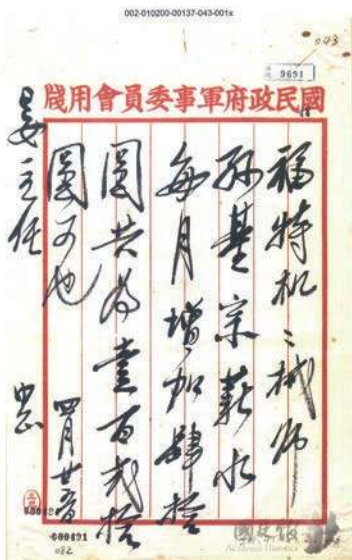 002-010200-00137-043-001x
043
9691
國民政府軍事委員會用牋
福特机機械師
孫基宗薪水
每月增加肆拾
圓共為壹百貳拾
圓可也
四月廿
晏主任
中正
000491
082
國史館
Academia Historica